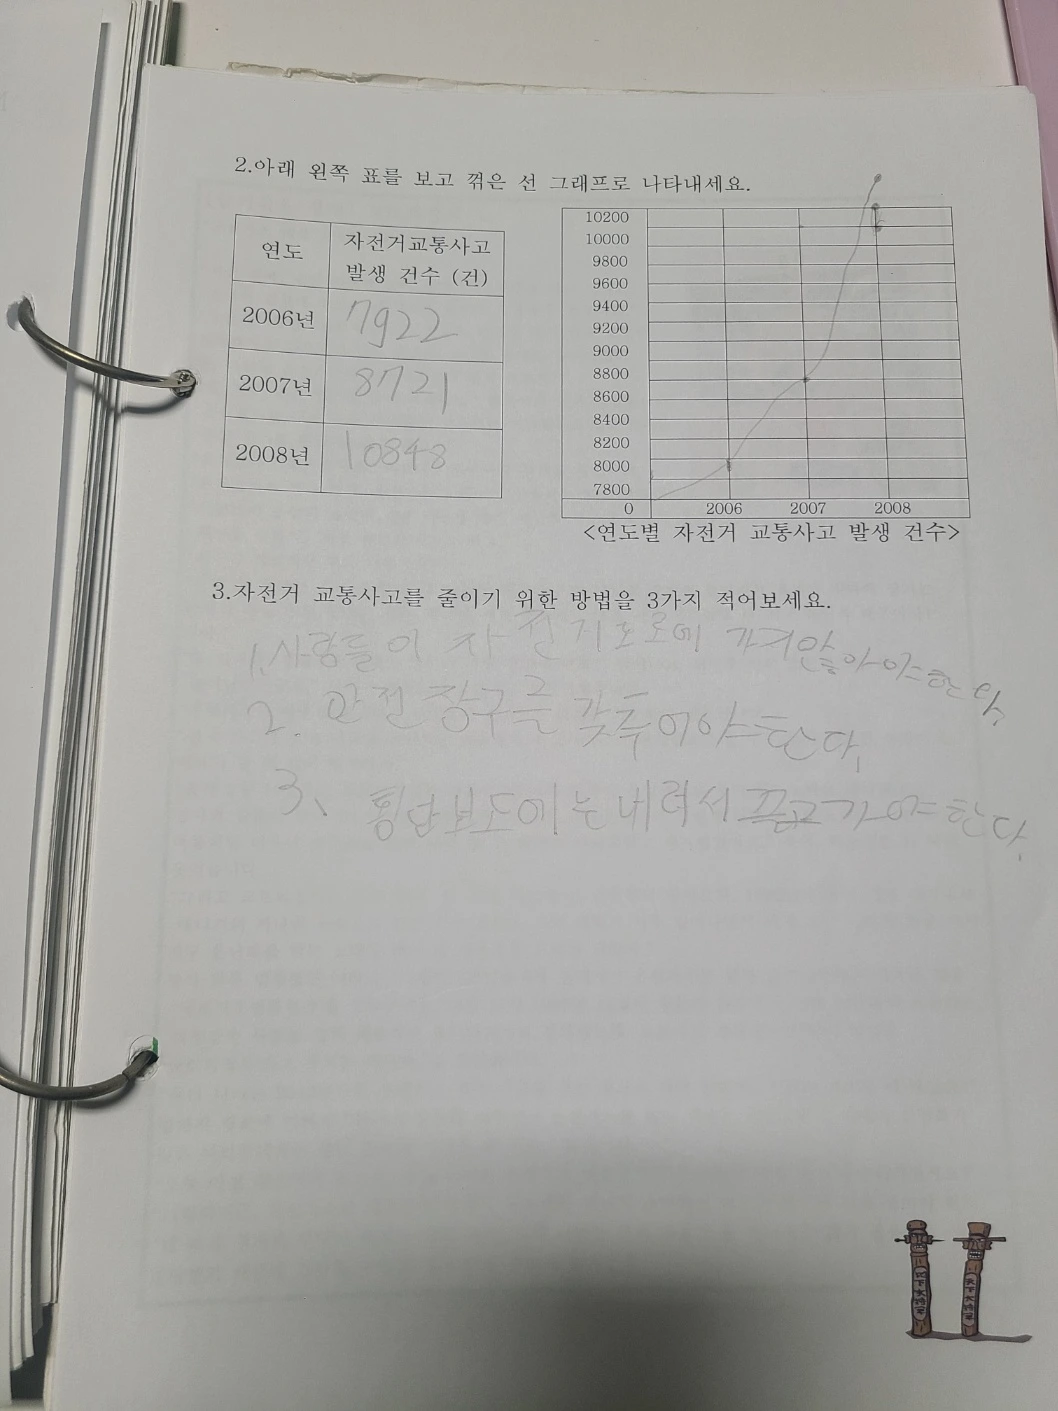 2.아래 왼쪽 표를 보고 꺾은 선 그래프로 나타내세요.
연도 자전거교통사고 발생 건수 (건)
2006년 7922
2007년 8721
2008년 10848
10200
10000
9800
9600
9400
9200
9000
8800
8600
8400
8200
8000
7800
0 2006 2007 2008
<연도별 자전거 교통사고 발생 건수>
3.자전거 교통사고를 줄이기 위한 방법을 3가지 적어보세요.
1. 사람들이 자전거도로에 가지않아야한다.
2. 안전장구를 갖추어야한다.
3. 횡단보도에는 내려서 끌고가야한다.